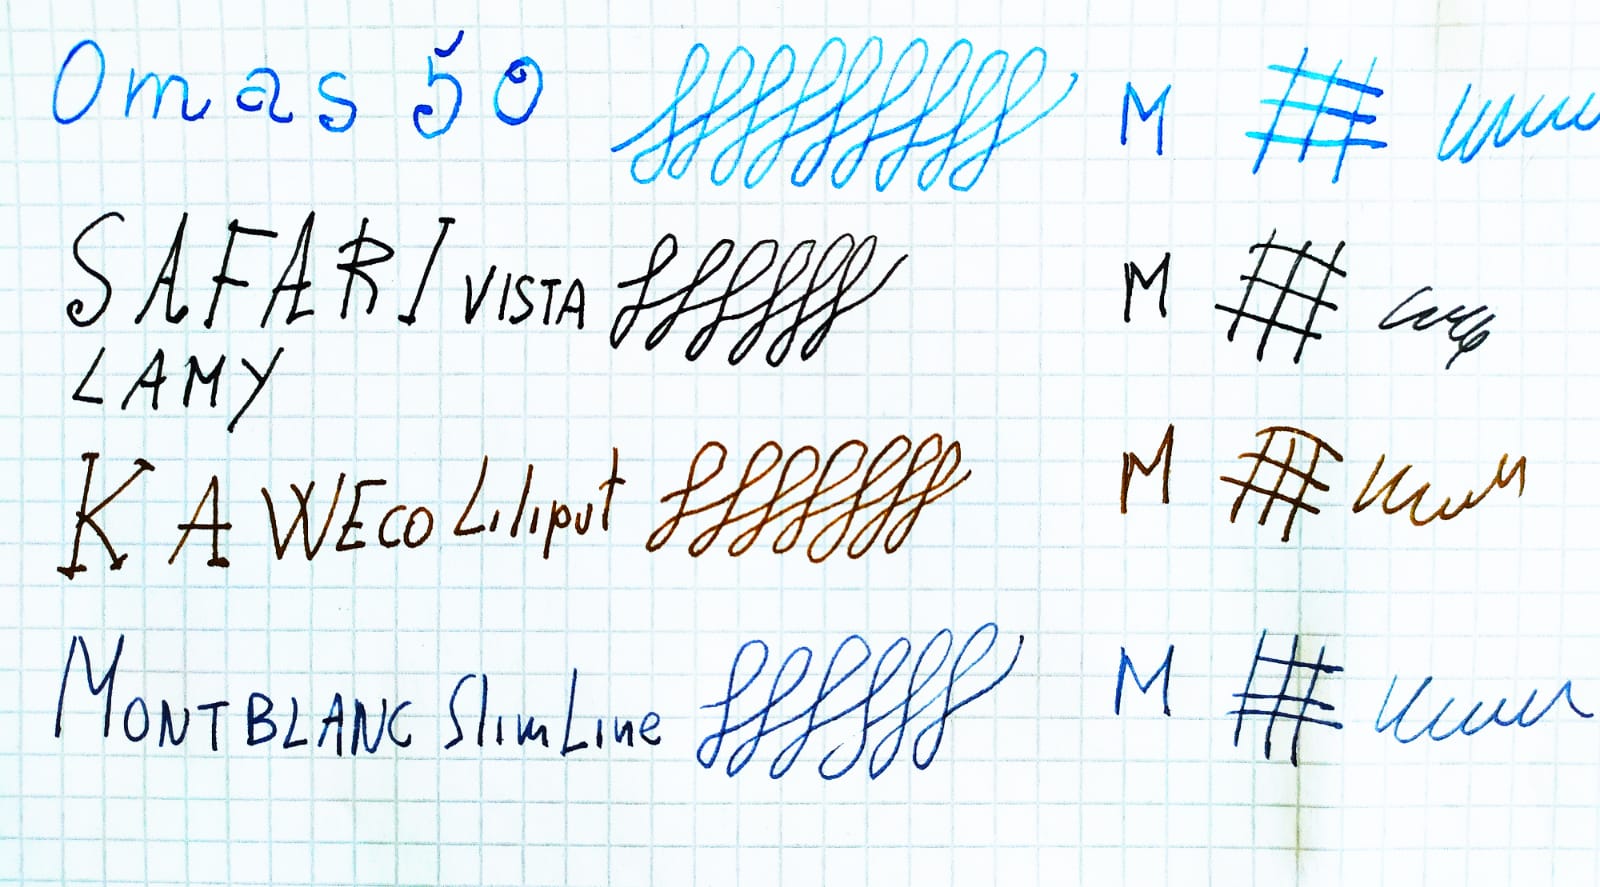 Omas 50 M
SAFARI VISTA M
LAMY
KAWECO Liliput M
MONTBLANC SlimLine M